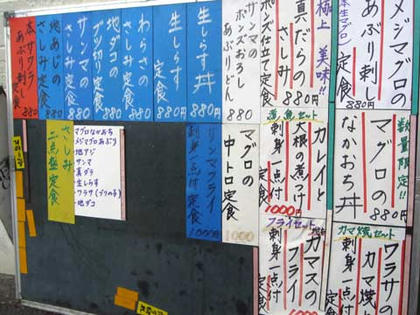 メジマグロの
あぶり刺し
定食
880円
極上 美味!!
真だらの
さしみ
定食
880円
サンマの
ポンズおろし
あぶりどん
880
生しらす丼
880円
生しらす
定食
880円
わらさの
さしみ
定食
880
地ダコの
ブツ切り定食
880
サンマの
さしみ定食
880
地あじの
さしみ定食
880
本サワラ
あぶり刺定食
880
数量限定!!
マグロの
なかおち丼
880円
煮魚セット
カレイと
大根の煮つけ
刺身一点付
定食
1000円
マグロの
中トロ定食
1000
サンマフライ
刺身一点付
定食
1000
マグロなかおち
メジマグロあぶり
地アジ
サンマ
真ダラ
生しらす
ワラサ(ブリの子)
地ダコ
さしみ
二点盛定食
カマ焼セット
ワラサの
カマ焼と
刺身一点付
フライセット
カマスの
フライ
刺身一点付
定食